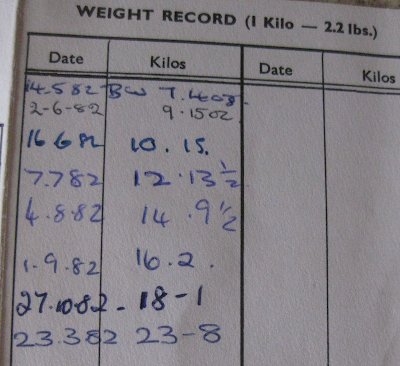 WEIGHT RECORD (1 Kilo — 2.2 lbs.)
Date Kilos Date Kilos
14.5 82 BW 7.4oz.
2-6-82 9.15oz.
16 6 82 10.15.
7.7 82 12.13 1/2
4.8.82 14.9 1/2
1.9.82 16.2.
27.10.82 - 18-1
23.3 82 23-8